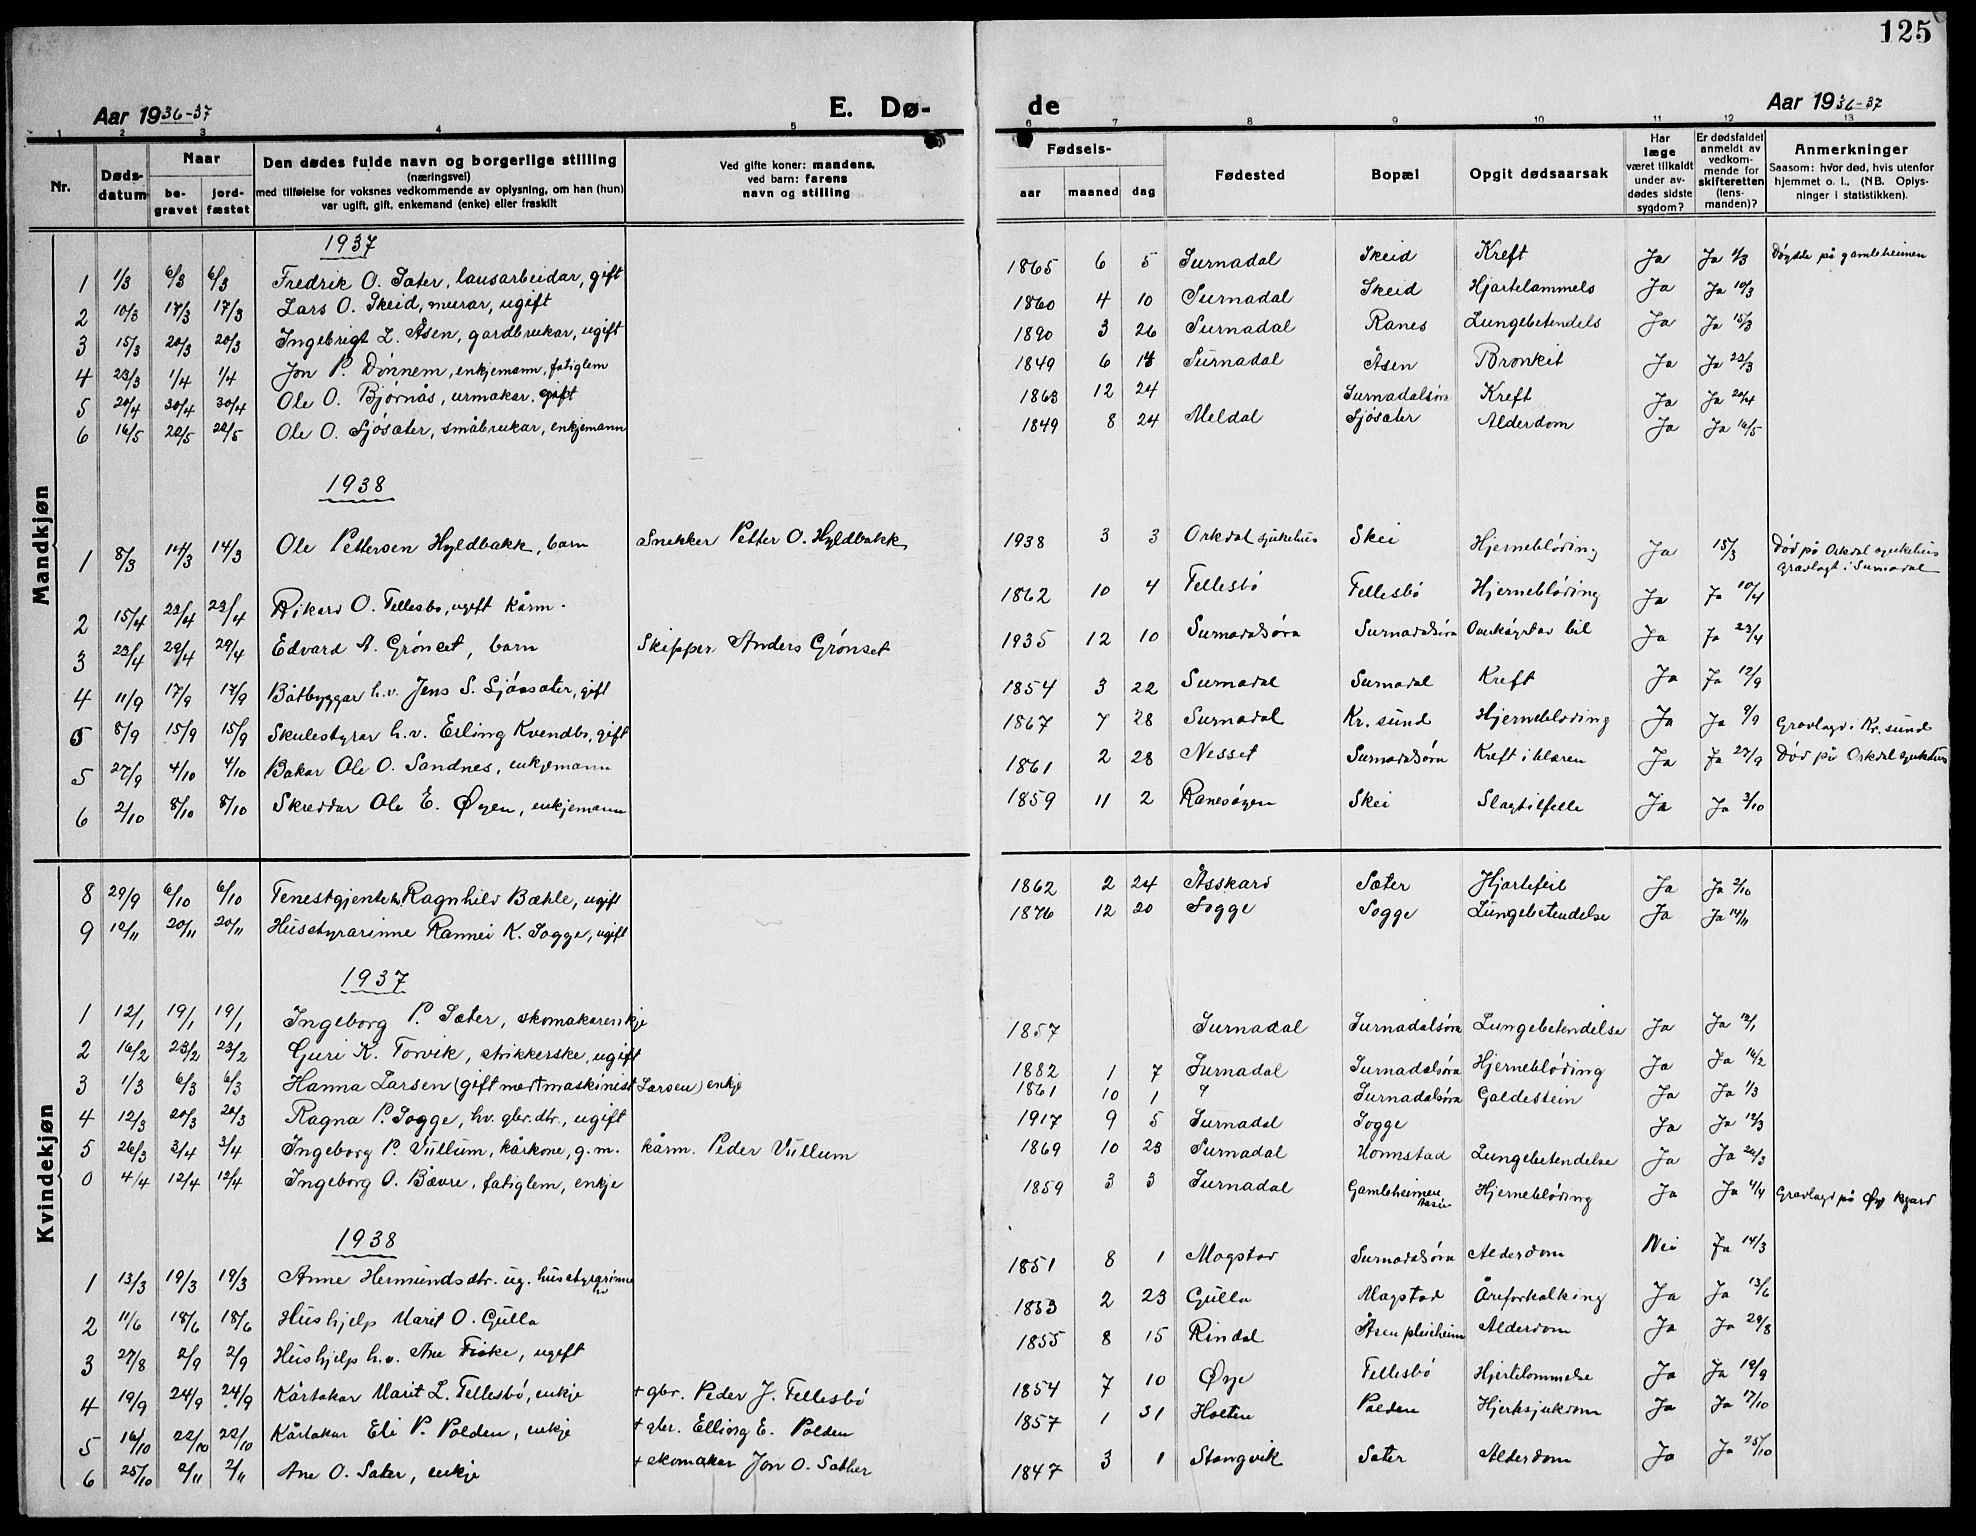 125
Aar 1936-37 E. Dø- de Aar 1936-37
1 2 3 4 5 6 7 8 9 10 11 12 13
Nr. Døds-datum Naar be-gravet jord-fæstet Den dødes fulde navn og borgerlige stilling (næringsvei) med tilføielse for voksnes vedkommende av oplysning, om han (hun) var ugift, gift, enkemand (enke) eller fraskilt Ved gifte koner: mandens, ved barn: farens navn og stilling Fødsels- aar maaned dag Fødested Bopæl Opgit dødsaarsak Har læge været tilkaldt under av-dødes sidste sygdom? Er dødsfaldet anmeldt av vedkom-mende for skifteretten (lens-manden)? Anmerkninger Saasom: hvor død, hvis utenfor hjemmet o. l., (NB. Oplys-ninger i statistikken).
Mandkjøn
1937
1 1/3 6/3 6/3 Fredrik O. Sæter, lausarbeidar, gift 1865 6 5 Surnadal Skeid Kreft Ja Ja 1/3 Døydde på gamleheimen
2 10/3 17/3 17/3 Lars O. Skeid, murar, ugift 1860 4 10 Surnadal Skeid Hjartelammels Ja Ja 10/3
3 15/3 20/3 20/3 Ingebrigt L. Åsen, gardbrukar, ugift 1890 3 26 Surnadal Ranes Lungebetendels Ja Ja 15/3
4 23/3 1/4 1/4 Jon P. Dønnem, enkjemann, fatiglem 1849 6 Surnadal Åsen Bronkit Ja Ja 23/3
5 20/4 30/4 30/4 Ole O. Bjørnås, urmakar, gift 1863 12 24 Surnadalsøra Kreft Ja Ja 20/4
6 16/5 22/5 22/5 Ole O. Sjøsæter, småbrukar, enkjemann 1849 8 24 Meldal Sjøsæter Alderdom Ja Ja 16/5
1938
1 8/3 14/3 14/3 Ole Pettersen Hyldbakk, barn Snekker Petter O. Hyldbakk 1938 3 3 Orkdal sjukehus Skei Hjerneblóding Ja 15/3 Død på Orkdal sjukehus
gravlagt i Surnadal
2 15/4 23/4 23/4 Rikard O. Tellesbø, ugift kårm. 1862 10 4 Tellesbö Tellesbö Hjerneblóding Ja Ja 10/4
3 23/4 29/4 29/4 Edvard A. Grønset, barn Skipper Anders Grønset 1935 12 10 Surnadalsøra Surnadalsøra Overkøyrd av bil Ja Ja 23/4
4 11/9 17/9 17/9 Båtbyggar h.v. Jens S. Sjøsæter, gift 1854 3 22 Surnadal Surnadal Kreft Ja Ja 12/9
5 8/9 15/9 15/9 Skulestyrar h.v. Erling Kvendbø, gift 1867 7 28 Surnadal Kr. sund Hjerneblóding Ja Ja 9/9 Gravlagt i Kr. sund
5 27/9 4/10 4/10 Bakar Ole O. Sandnes, enkjemann 1861 2 28 Nesset Surnadalsøra Kreft i blæren Ja Ja 27/9 Død på Orkdal sjukehus
6 2/10 8/10 8/10 Skreddar Ole E. Øyen, enkjemann 1859 11 2 Ranesøyen Skei Slagtilfelle Ja Ja 3/10
Kvindekjøn
8 29/9 6/10 6/10 Tenestgjente h. Ragnhild Bæhle, ugift 1862 2 24 Åsskard Sæter Hjartefeil Ja Ja 2/10
9 12/11 20/11 20/11 Husstyrarinne Rannei K. Sogge, ugift 1876 12 20 Sogge Sogge Lungebetendelse Ja Ja 14/11
1937
1 12/1 19/1 19/1 Ingeborg P. Sæter, skomakarenkje 1857 Surnadal Surnadalsøra Lungebetendelse Ja Ja 12/1
2 16/2 23/2 23/2 Guri K. Torvik, strikkerske, ugift 1882 1 7 Surnadal Surnadalsøra Hjerneblóding Ja Ja 16/2
3 1/3 6/3 6/3 Hanna Larsen (gift med maskinist Larsen) enkje 1861 10 1 ? Surnadalsøra Galdestein Ja Ja 1/3
4 12/3 20/3 20/3 Ragna P. Sogge, hv. gbr.dtr., ugift 1917 9 5 Surnadal Sogge Ja Ja 12/3
5 26/3 3/4 3/4 Ingeborg P. Vullum, kårkone, g. m. kårm. Peder Vullum 1869 10 23 Surnadal Honnstad Lungebetendelse Ja Ja 26/3
0 4/4 12/4 12/4 Ingeborg O. Bævre, fatiglem, enkje 1859 3 3 Surnadal Gamleheimen Åsen Hjerneblóding Ja Ja 4/4 Gravlagd på Øye kgard
1938
1 13/3 19/3 19/3 Anne Hermundsdtr. ug. husstyrarinne hv 1851 8 1 Mogstad Surnadalsøra Alderdom Nei Ja 14/3
2 11/6 18/6 18/6 Hushjelp Marit O. Gulla 1853 2 23 Gulla Mogstad Åreforkalking Ja Ja 13/6
3 27/8 2/9 2/9 Hushjelp h.v. Ane Fiske, ugift 1855 8 15 Rindal Åsen pleieheim Alderdom Ja Ja 29/8
4 19/9 24/9 24/9 Kårtakar Marit L. Tellesbó, enkje + gbr. Peder J. Tellesbó 1854 7 10 Øye Tellesbö Hjertelammelse Ja Ja 19/9
5 16/10 22/10 22/10 Kårtakar Eli P. Polden, enkje + gbr. Ellivg E. Polden 1857 1 31 Holten Polden Hjertesjukdom Ja Ja 17/10
6 25/10 2/11 2/11 Ane O. Sæter, enkje + skomakar Jon O. Sæther 1847 3 1 Stangvik Sæter Alderdom Ja Ja 25/10